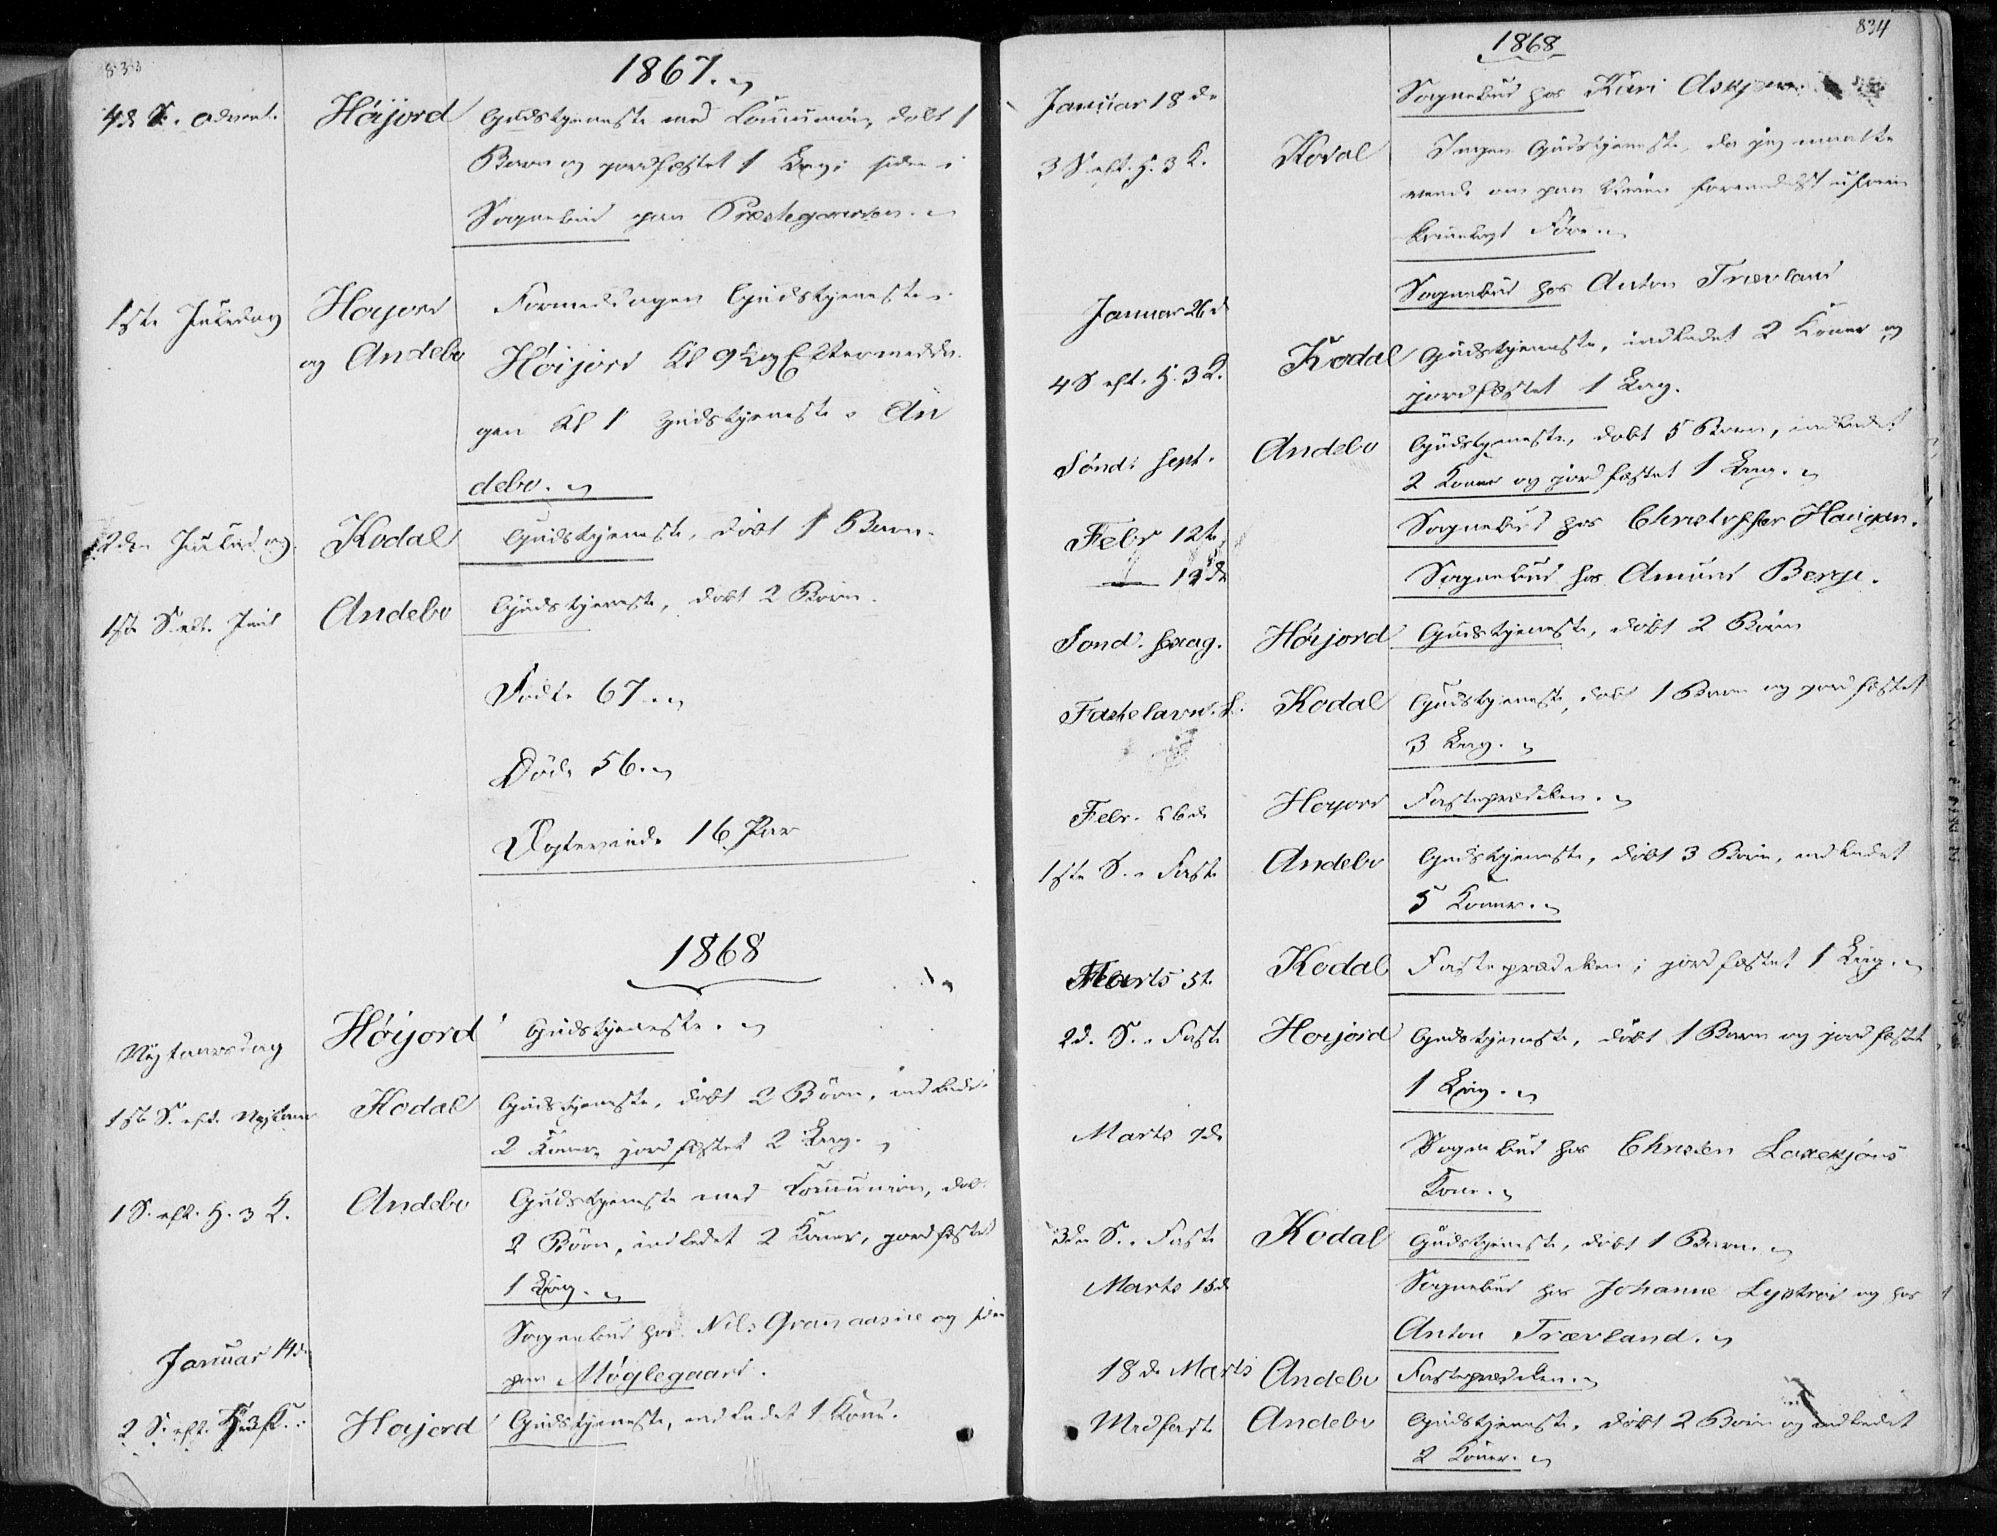 833
1867.
4de S. i Advent. Høijord Gudstjeneste med Communion, døbt 1
Barn og jordfæstet 1 Liig; siden i
Sognebud paa Præstegaarden.
1ste Juledag Høijord Formiddagen Gudstjeneste i
og Andebo Høijord Kl 9½ og Eftermidda
gen Kl 1 Gudstjeneste i An
debo.
2den Juledag Kodal Gudstjeneste, døbt 1 Barn.
1ste S. eft. Juul Andebo Gudstjeneste, døbt 2 Børn.
Fødte 67.
Døde 56.
Ægteviede 16 Par
1868
Nytaarsdag Høijord Gudstjeneste.
1ste S. eft. Nytaar Kodal Gudstjeneste, døbt 2 Børn, indledet
2 Koner, jordfæstet 2 Liig.
1 S. eft. H. 3 K. Andebo Gudstjeneste med Communion, døbt
2 Børn, indledet 2 Koner, jordfæstet
1 Liig.
Januar 14de Sognebud hos Nils Granaasne og siden
paa Møglegaard.
2 S. eft. H. 3 K. Høijord Gudstjeneste, indledet 1 Kone.
834
1868
Januar 18de Sognebud hos Kari Askjem.
3 S. eft. H. 3 K. Kodal Ingen Gudstjeneste, da jeg maatte
vende om paa Veien formedelst ufrem
kommeligt Føre.
Januar 26de Sognebud hos Anton Trævland
4 S. eft. H. 3 K. Kodal Gudstjeneste, indledet 2 Koner og
jordfæstet 1 Liig.
Sønd: Sept. Andebo Gudstjeneste, døbt 5 Børn, indledet
2 Koner og jordfæstet 1 Liig.
Febr 12te Sognebud hos Christopher Haugan.
— 13de Sognebud hos Amund Berge.
Sønd. Sexag. Høijord Gudstjeneste, døbt 2 Børn
Fastelavns. S. Kodal Gudstjeneste, døbt 1 Barn og jordfæstet
3 Liig.
Febr. 26de Høijord Fasteprædiken.
1ste S. i Faste Andebo Gudstjeneste, døbt 3 Børn, indledet
5 Koner.
Marts 5te Kodal Fasteprædiken; jordfæstet 1 Liig.
2d. S. i Faste Høijord Gudstjeneste, døbt 1 Barn og jordfæstet
1 Liig.
Marts 9de Sognebud hos Christen
Kone.
3die S. i Faste Kodal Gudstjeneste, døbt 1 Barn.
Marts 15de Sognebud hos Johanne Lystrød og hos
Anton Trævland.
18de Marts Andebo Fasteprædiken.
Midfaste Andebo Gudstjeneste, døbt 2 Børn og indledet
2 Koner.